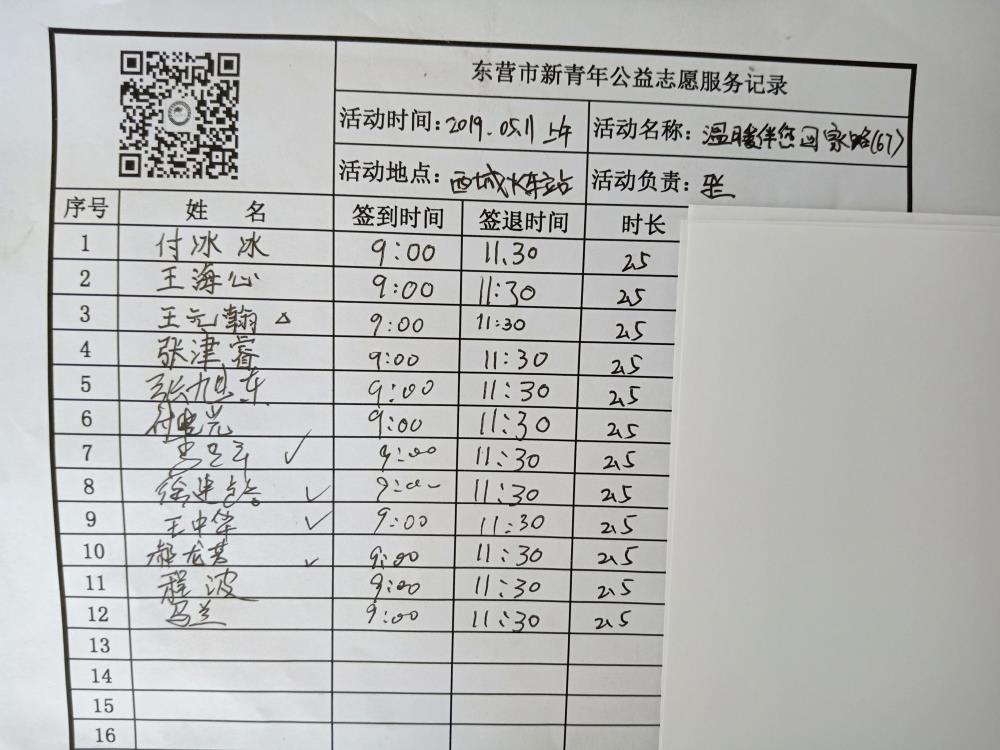 东营市新青年公益志愿服务记录
活动时间：2019.05.11 上午 活动名称：温暖伴您回家路(67)
活动地点：西城火车站 活动负责：
序号 姓 名 签到时间 签退时间 时长
1 付冰冰 9:00 11.30 2.5
2 王海心 9:00 11:30 2.5
3 王元翰 △ 9:00 11:30 2.5
4 张津睿 9:00 11:30 2.5
5 张旭东 9:00 11:30 2.5
6 9:00 11:30 2.5
7 ✓ 9:00 11:30 2.5
8 徐建 ✓ 9:00 11:30 2.5
9 王中华 ✓ 9:00 11:30 2.5
10 郝龙 ✓ 9:00 11:30 2.5
11 程波 9:00 11:30 2.5
12 马兰 9:00 11:30 2.5
13
14
15
16